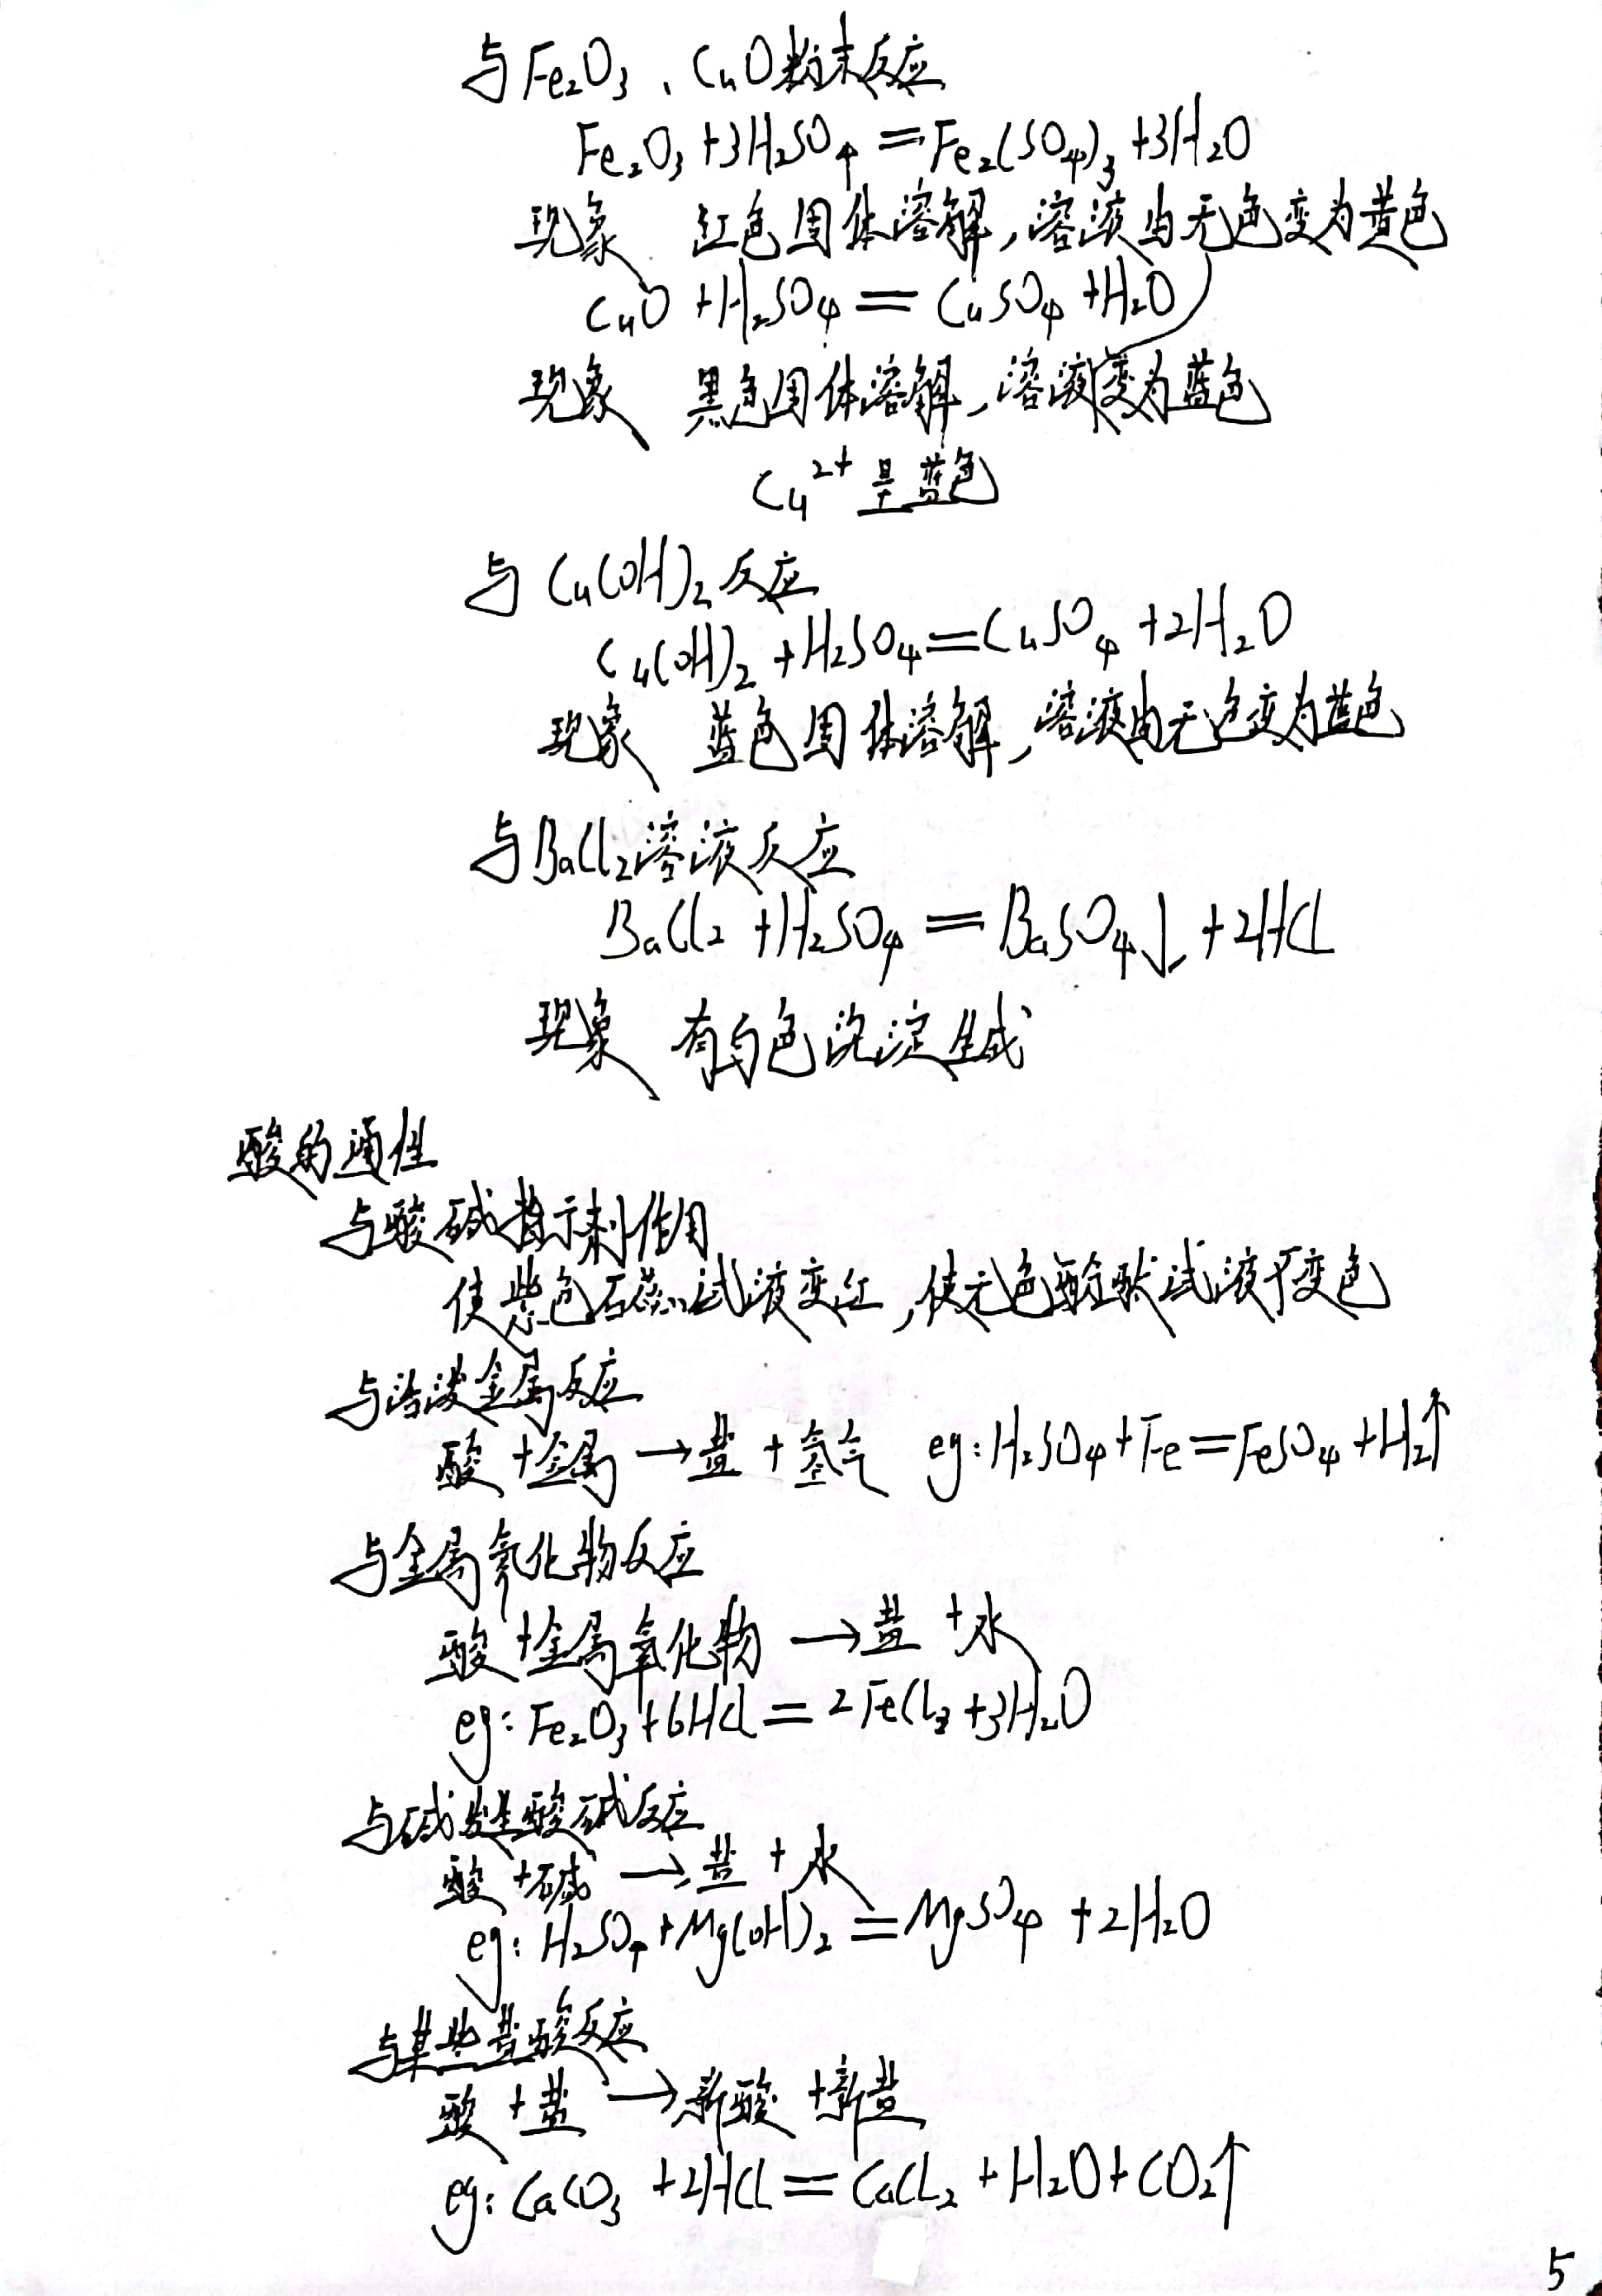 与Fe₂O₃、CuO粉末反应
Fe₂O₃+3H₂SO₄=Fe₂(SO₄)₃+3H₂O
现象 红色固体溶解,溶液由无色变为黄色
CuO+H₂SO₄=CuSO₄+H₂O
现象 黑色固体溶解,溶液变为蓝色
Cu²⁺呈蓝色
与Cu(OH)₂反应
Cu(OH)₂+H₂SO₄=CuSO₄+2H₂O
现象 蓝色固体溶解,溶液由无色变为蓝色
与BaCl₂溶液反应
BaCl₂+H₂SO₄=BaSO₄↓+2HCl
现象 有白色沉淀生成
酸的通性
与酸碱指示剂作用
使紫色石蕊试液变红,使无色酚酞试液不变色
与活泼金属反应
酸+金属→盐+氢气 eg:H₂SO₄+Fe=FeSO₄+H₂↑
与金属氧化物反应
酸+金属氧化物→盐+水
eg:Fe₂O₃+6HCl=2FeCl₃+3H₂O
与碱发生酸碱反应
酸+碱→盐+水
eg:H₂SO₄+Mg(OH)₂=MgSO₄+2H₂O
与某些盐酸反应
酸+盐→新酸+新盐
eg:CaCO₃+2HCl=CaCl₂+H₂O+CO₂↑
5